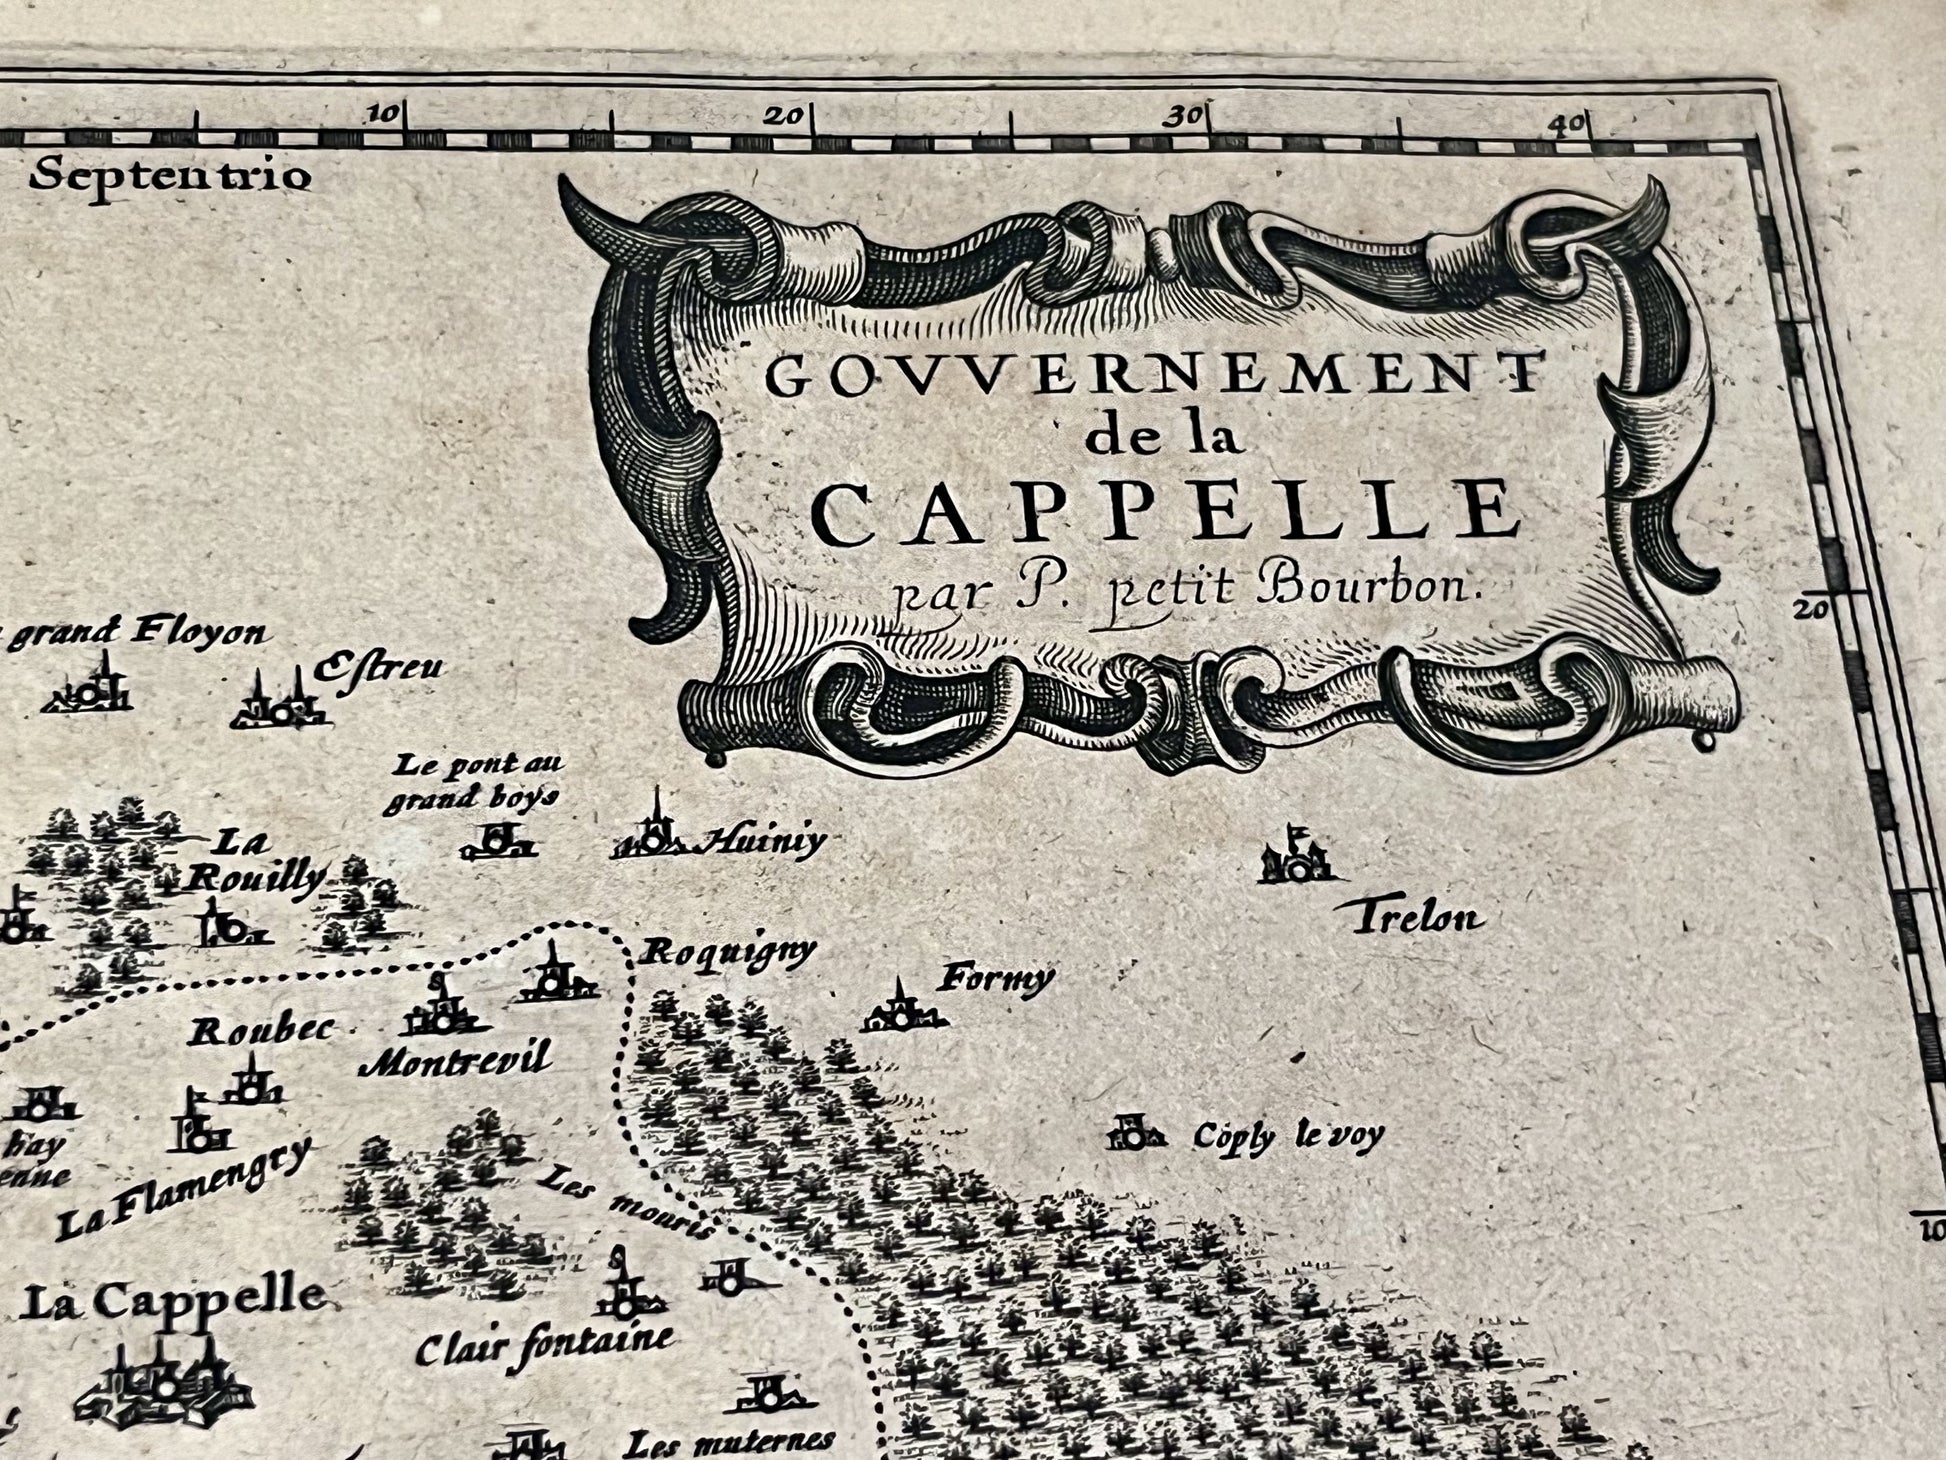 10 20 30 40
Septentrio
GOVVERNEMENT
de la
CAPPELLE
par P. petit Bourbon.
20
grand Floyon
Estreu
Le pont au
grand boys
Huiniy
La
Rouilly
Trelon
Roquigny
Formy
Roubec
Montrevil
Coply le voy
hay
enne
La Flamengry
Les mouris
10
La Cappelle
Clair fontaine
Les muternes